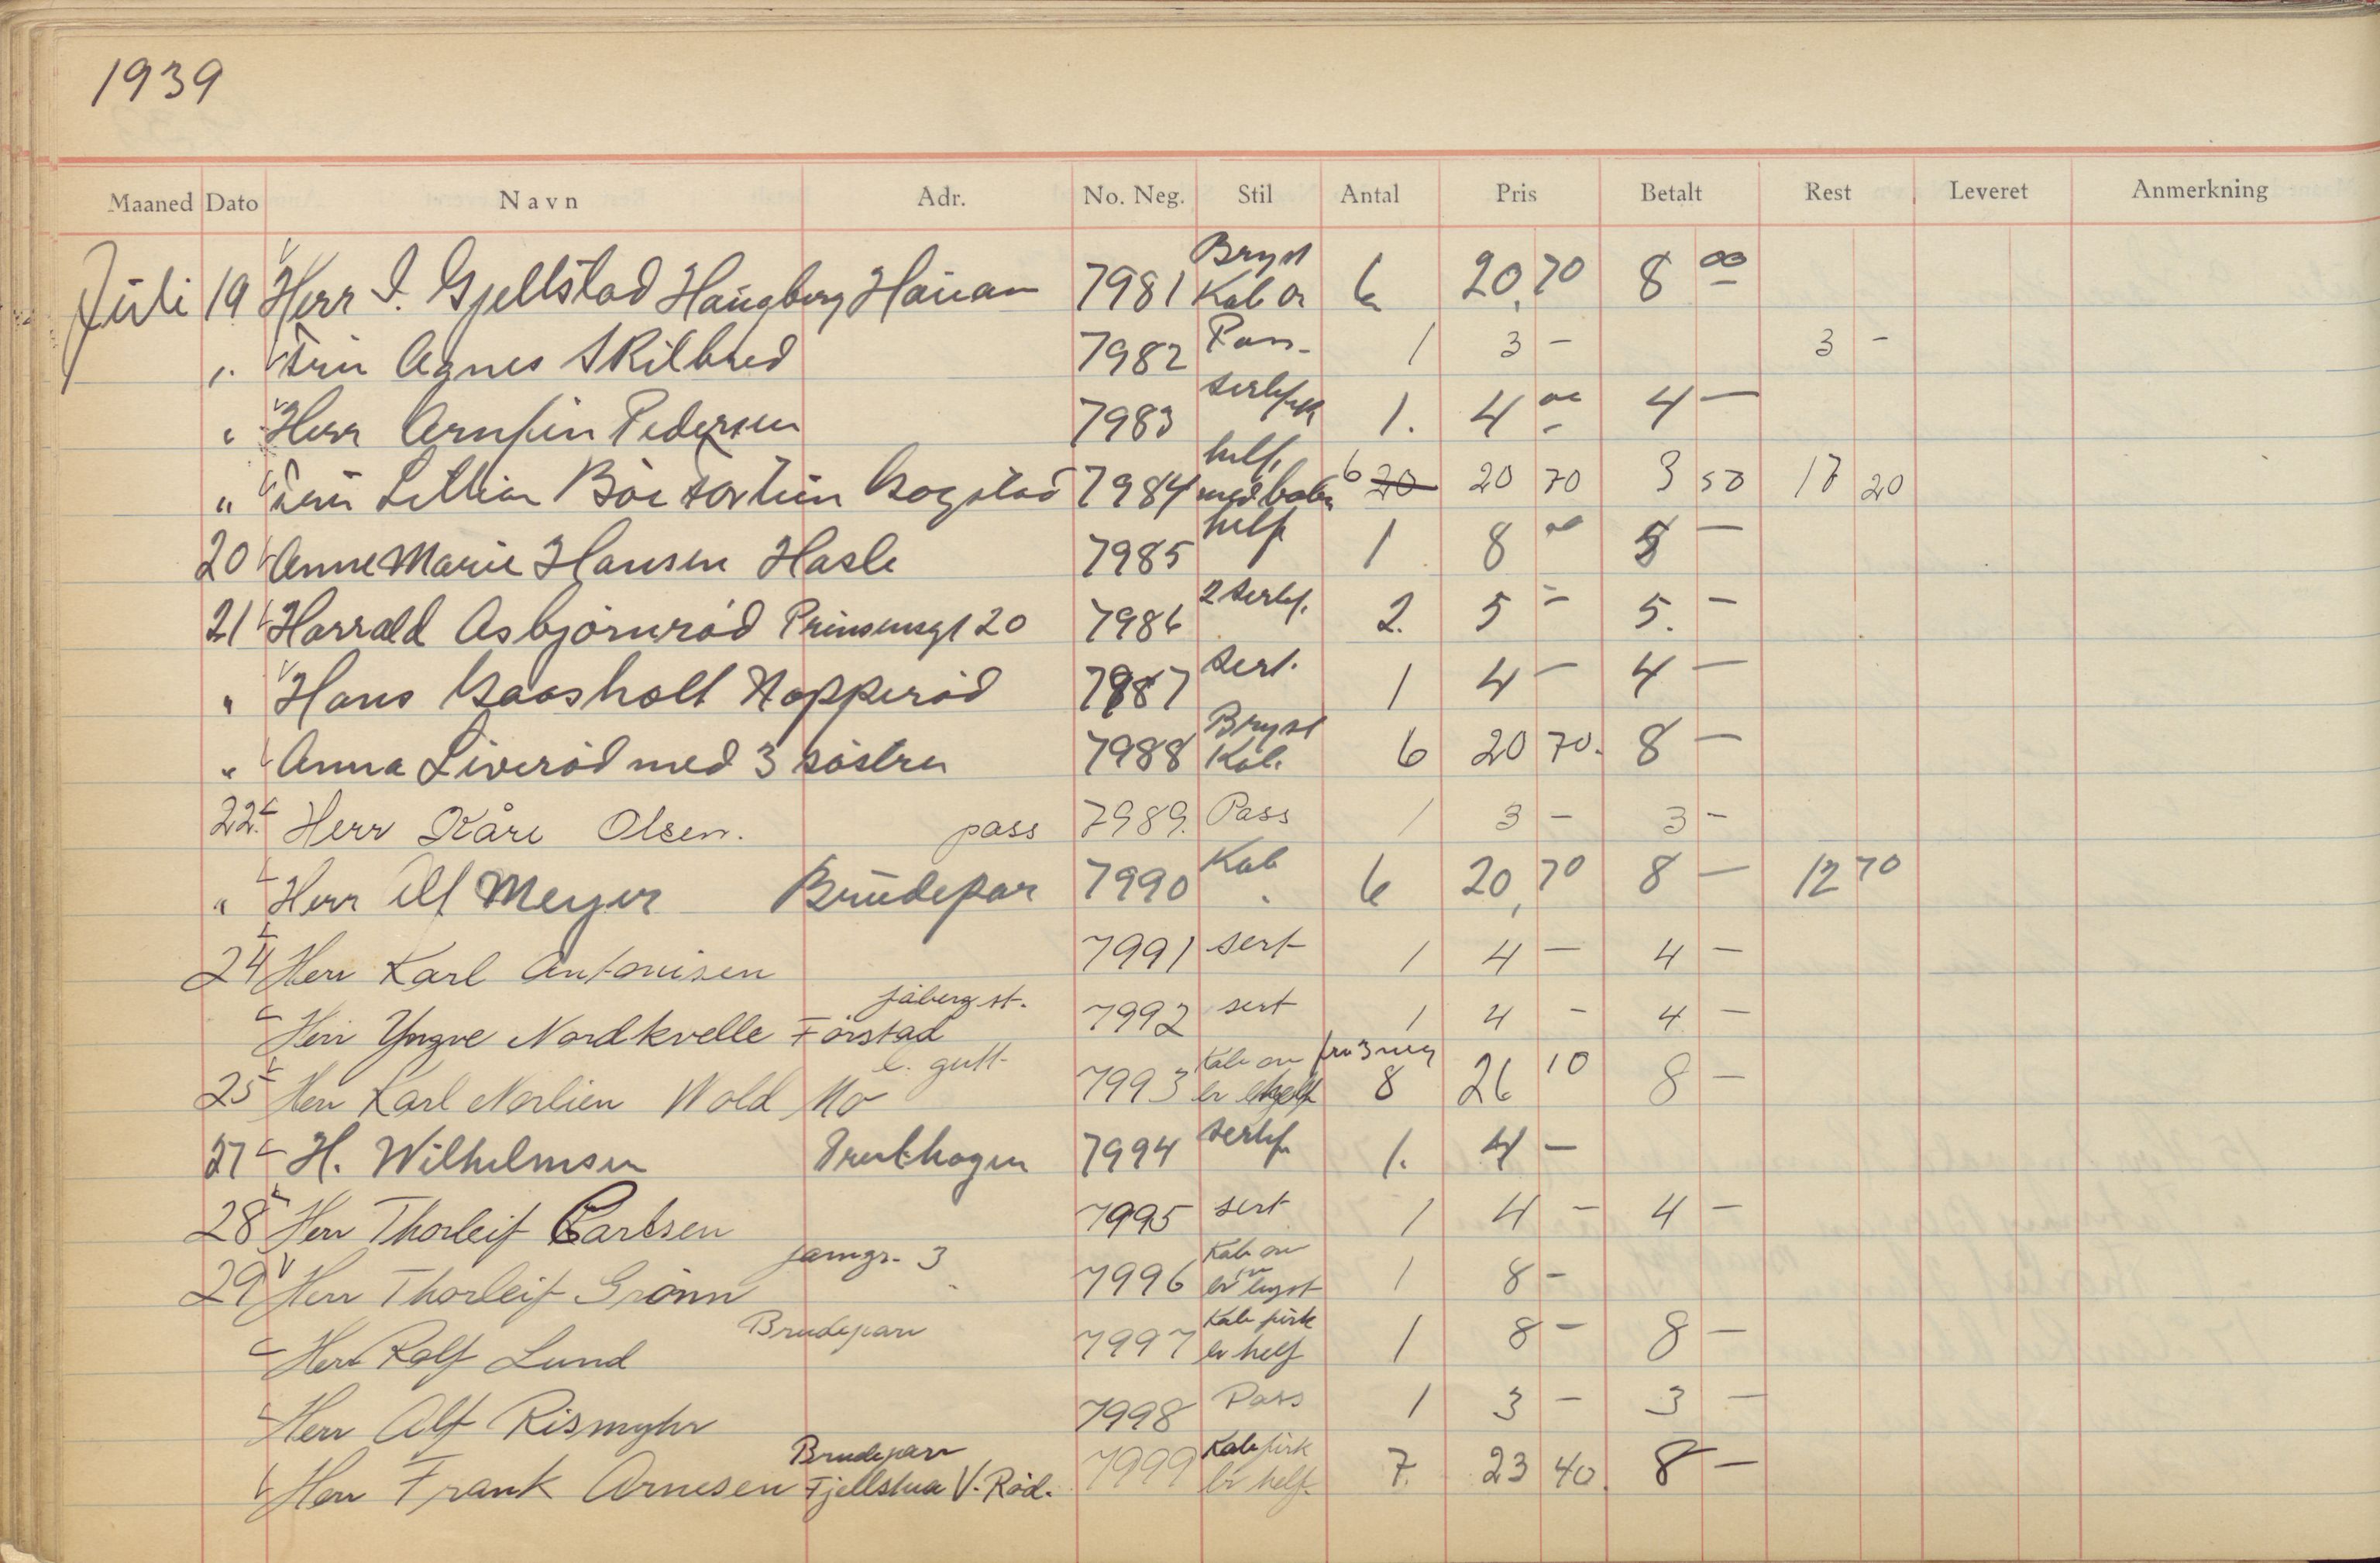 1939
Maaned Dato Navn Adr. No. Neg. Stil Antal Pris Betalt Rest Leveret Anmerkning
Juli 19 Herr I. Gjellstad Haugberg Hauan 7981 Bryst Kab 6 20,70 8 00
" Agnes Skilbred 7982 Pass 1 3 - 3 -
" Herr Arnfin Pedersen 7983 1. 4 00 4 -
" Böe Bogstad 7984 helf. med 6 20 20 70 3 50 17 20
20 Anne Marie Hansen Hasle 7985 helf 1 8 00 5 -
21 Harrald Asbjörnröd Prinsensgt 20 7986 2 sertf. 2. 5 = 5. -
" Hans Gaasholt Kopperöd 7987 sert. 1 4 - 4 -
" Anna Liveröd med 3 söstre 7988 Bryst Kab. 6 20 70. 8 -
22. Herr Kåre Olsen. pass 7989. Pass 1 3 - 3 -
" Herr Alf Meyer Brudepar 7990 Kab 6 20,70 8 - 12 70
24 Herr Karl Antonisen 7991 sert 1 4 - 4 -
Herr Yngve Nordkvelle 7992 sert 1 4 - 4 -
25 Herr Karl Norlien Wold Mo l. gutt 7993 Kab 8 26 10 8 -
27 H. Wilhelmsen 7994 sertf. 1. 4 -
28 Herr Thorleif Carlsen 7995 sert 1 4 - 4 -
29 Herr Thorleif Grönn famgr. 3 7996 Kab 1 8 -
Herr Rolf Lund Brudepar 7997 Kab helf 1 8 - 8 -
Herr Alf Rismyhr 7998 Pass 1 3 - 3 -
Herr Frank Arnesen Brudepar Fjellstua V. Röd. 7999 Kab helf. 7. 23 40. 8 -